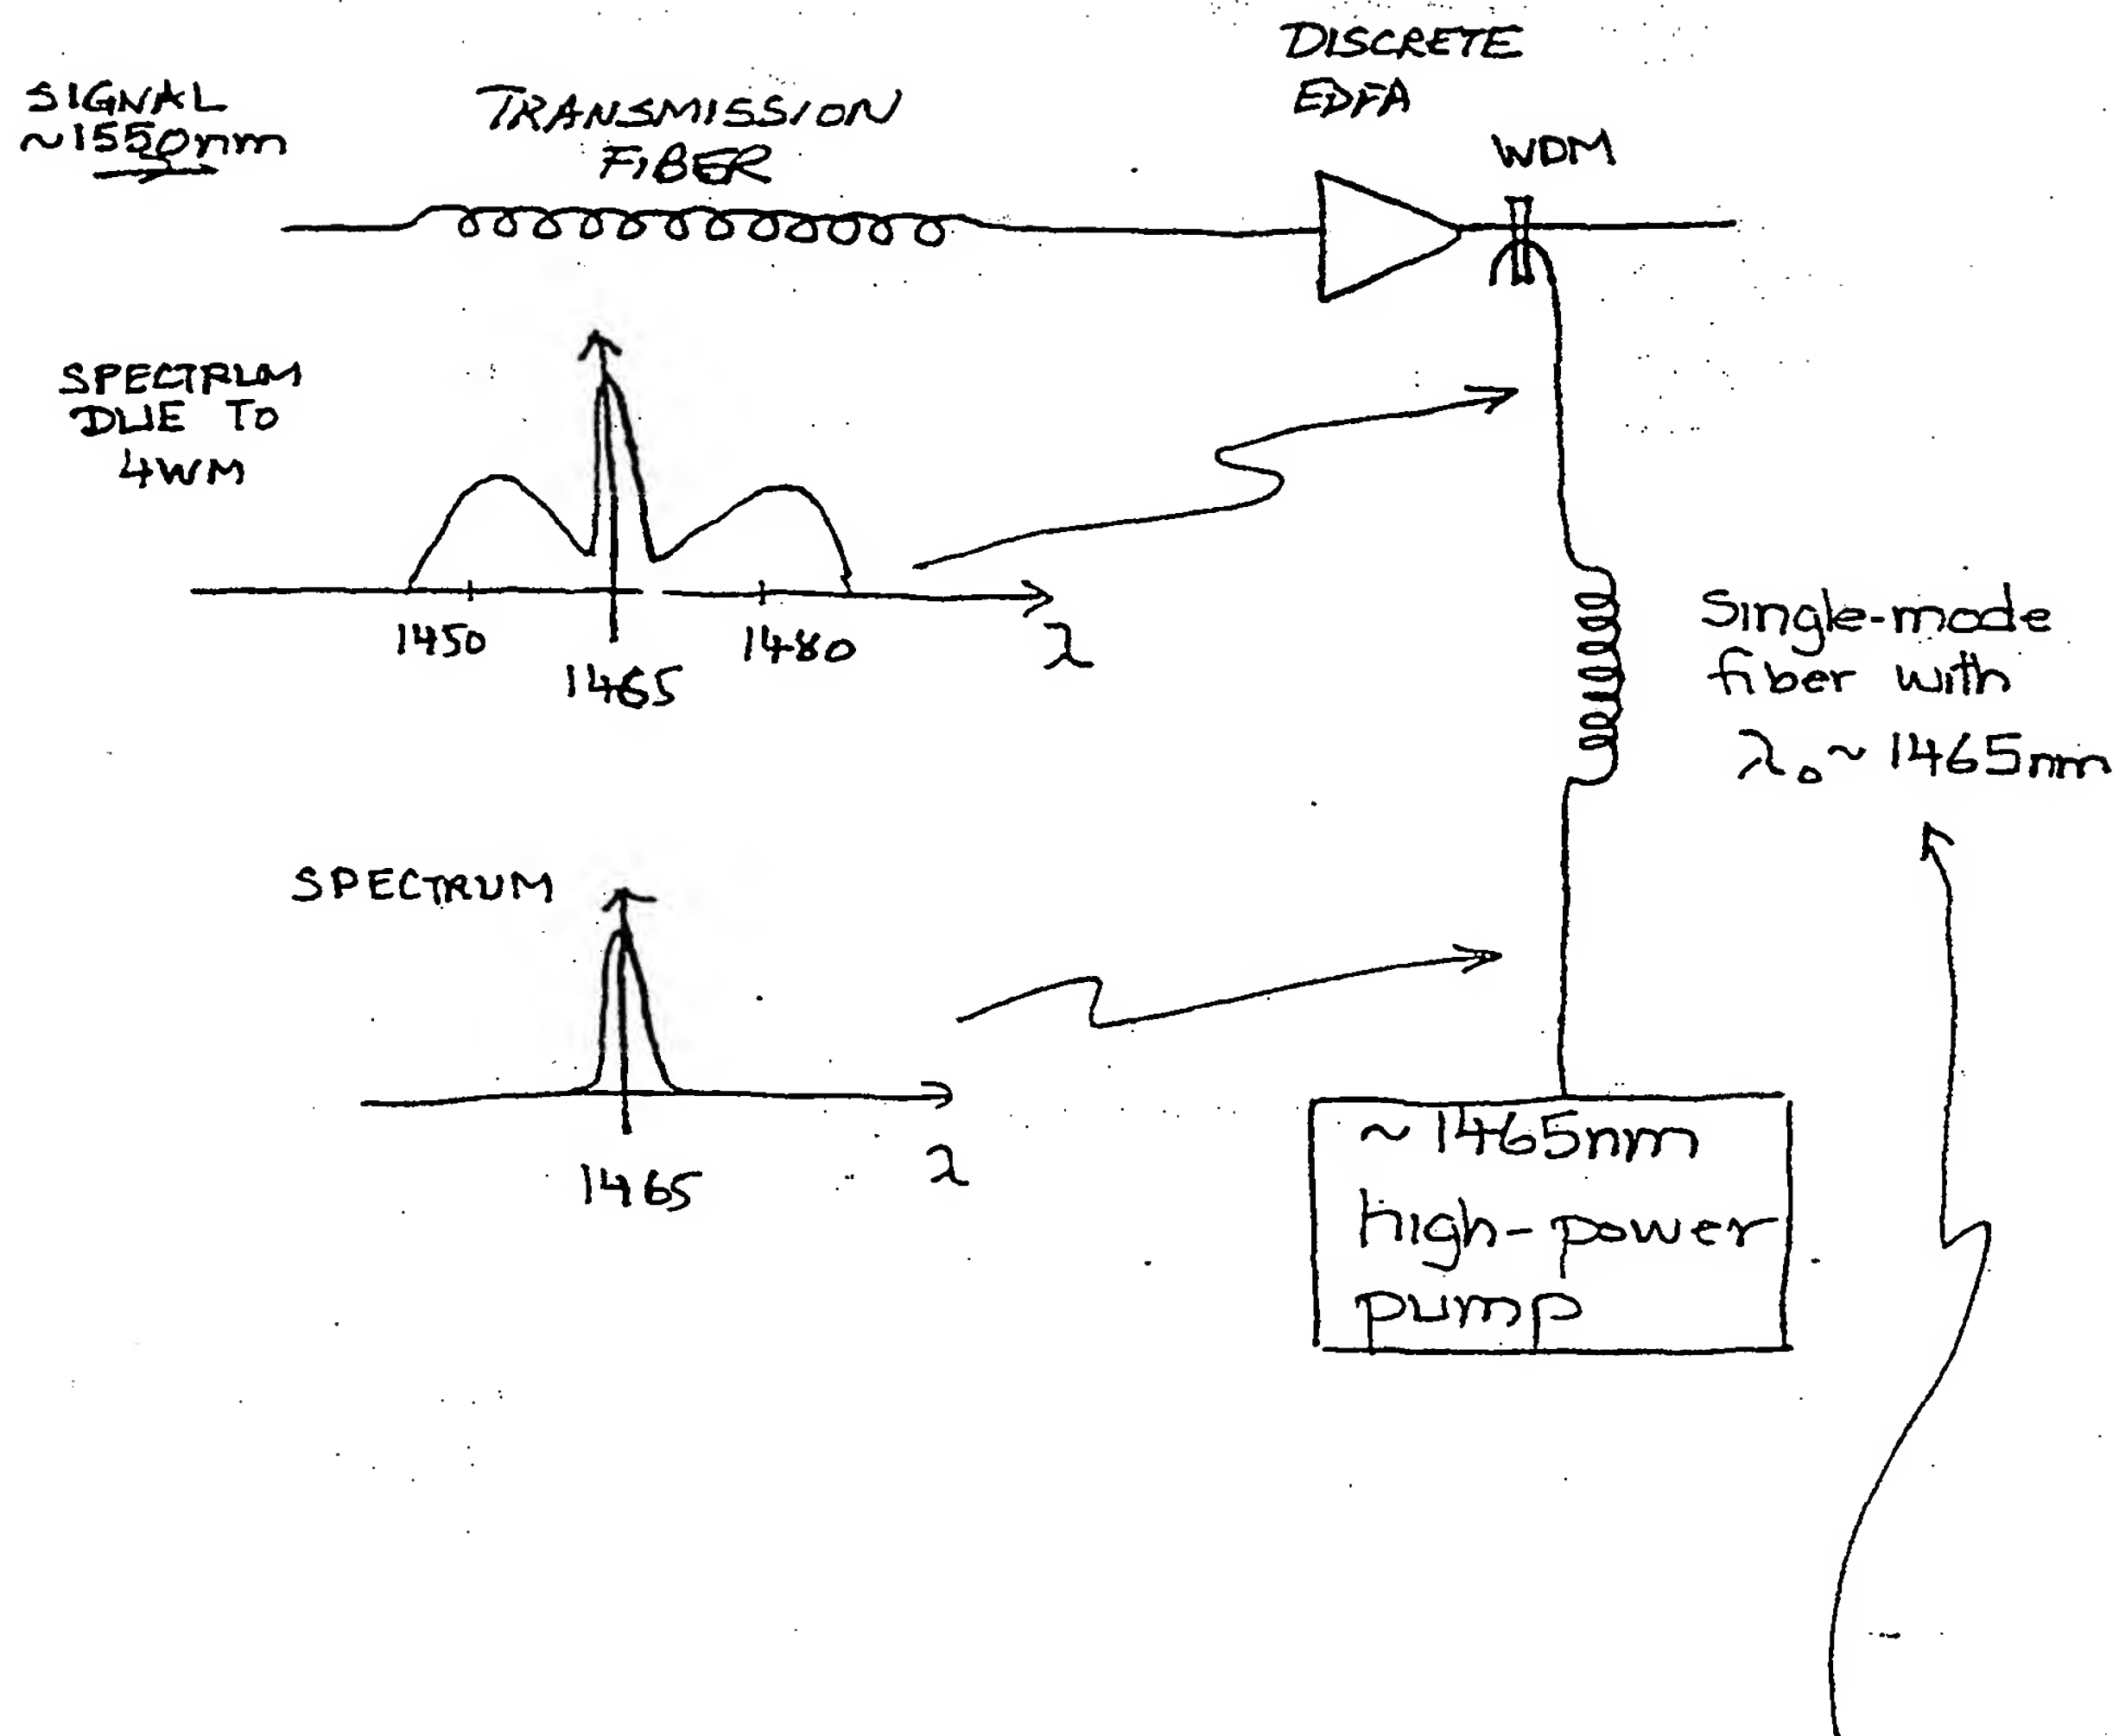 DISCRETE
EDFA
SIGNAL
~1550nm
TRANSMISSION
FIBER
WDM
SPECTRUM
DUE TO
4WM
1450
1465
1480
λ
Single-mode
fiber with
λ₀ ~ 1465nm
SPECTRUM
1465
λ
~1465nm
high-power
pump